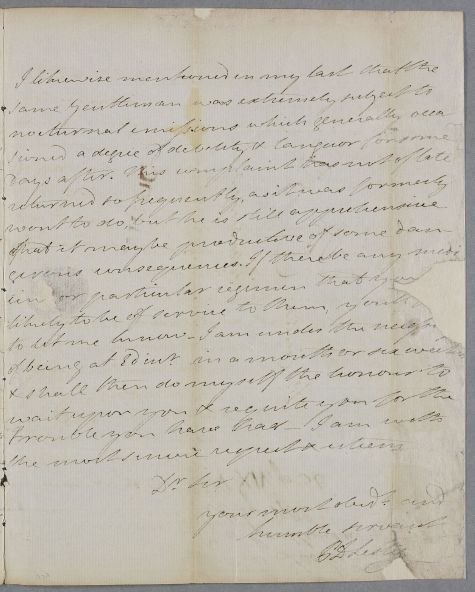 I likewise mentioned in my last that the
same Gentleman was extremely subject to
nocturnal emissions which generally occa
sioned a degree of debility & languor for some
days after. This complaint has not of late
returned so frequently, as it was formerly
wont to do, but he is still apprehensive
that it may be productive of some dan
gerous consequences. If there be any medi
cin or particular regimen that you
likely to be of service to them, you'll
to let me know. I am under the
of being at Edinr. in a month or six wee
& shall then do myself the honour to
wait upon you & requite you for the
trouble you have had - I am with
the most sincere respect & esteem
Dr Sir
your most obedt. and
humble servant